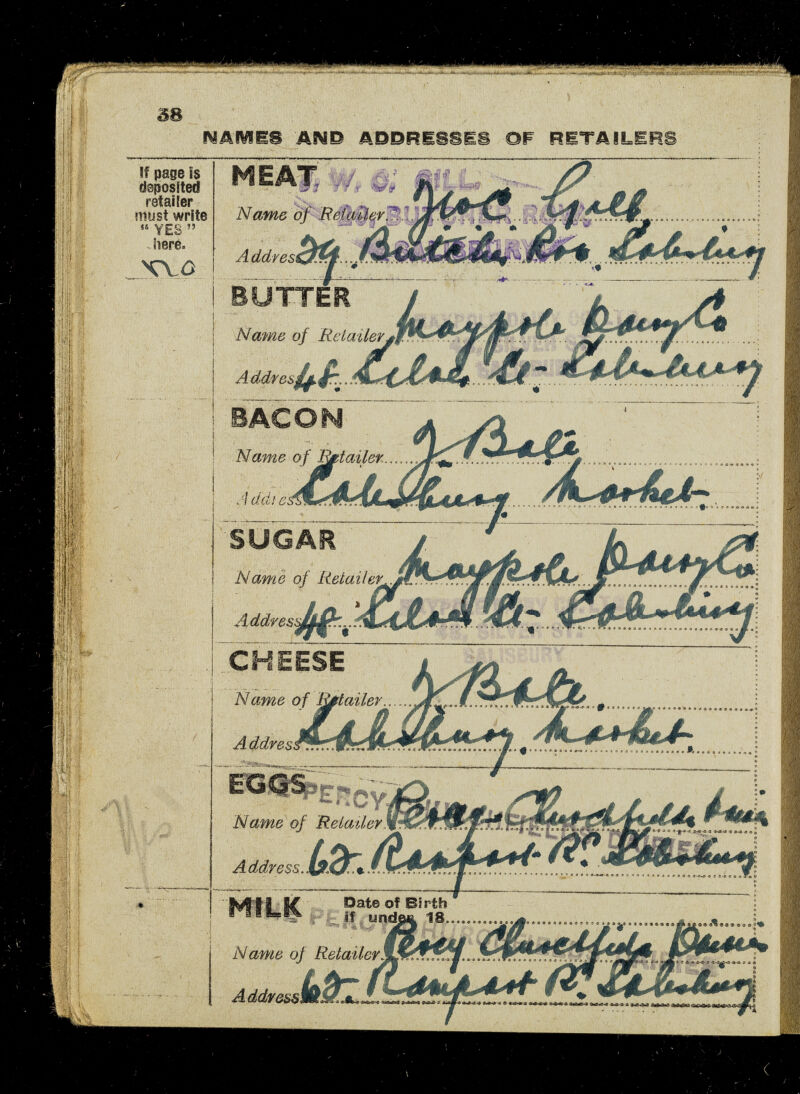 38
NAMES AND ADDRESSES OF RETAILERS
If page is
deposited
retailer
must write
“ YES ”
here.
no
MEAT
J. W. C. GILL,
Name of Retailer. JWC Gill
BUTCHER ROW,
SALISBURY
Address 29. Butcher Row. Salisbury
BUTTER
Name of Retailer Maypole Dairy Co
Address 48. Silver St- Salisbury
BACON
Name of Retailer J Bate
Address Salisbury Market.
SUGAR
Name of Retailer Maypole Dairy Co
Address 48. Silver St- Salisbury
48, SILVER ST.
SALISBURY
CHEESE
Name of Retailer J Bate.
Address Salisbury. Market.
EGGS
PERCY
Name of Retailer Percy Churchfields Dairies
DAIRIES
Yes
Address. 62. Rampart Rd. Salisbury
MILK Date of Birth
if under 18
Name of Retailer. Percy Churchfields Dairies
Address 62. Rampart Rd. Salisbury